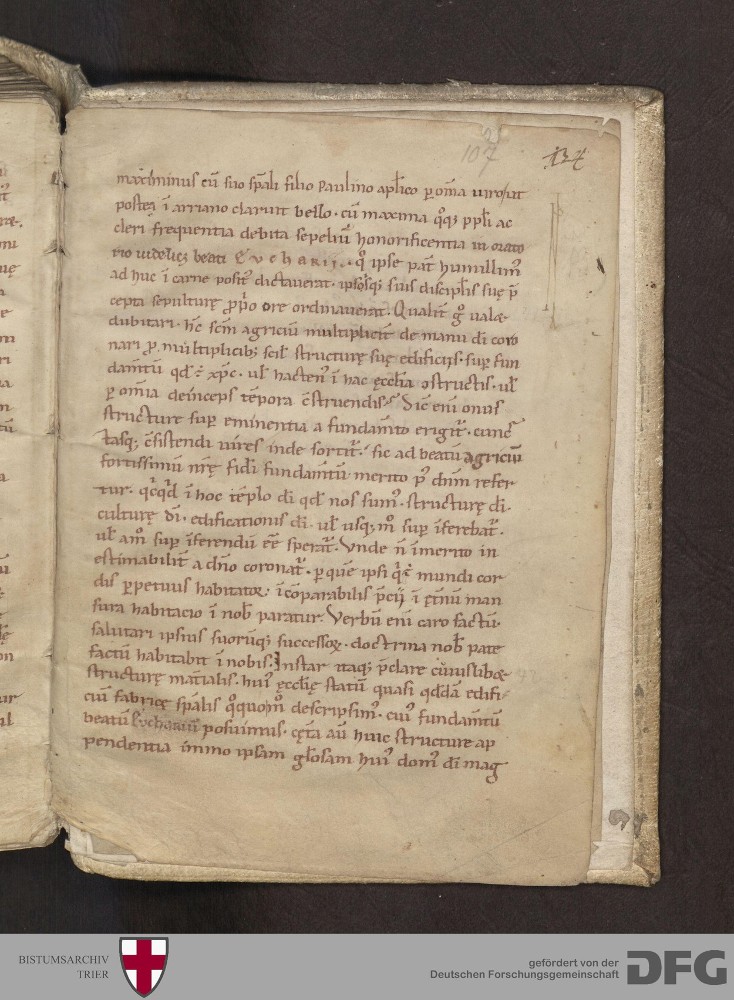 107
134
maximinus cū suo sp̄ali filio paulino apl̄ico ꝑ om̄ia uiro / ut
posteą ī arriano claruit bello · cū maxima q̊q; ppl̄i ac
cleri frequentia debita sepeliuī honorificentia in orato
rio uidelicꝫ beati Eucharii · q̊ ipse pat̄ humillimꝰ
ad huc ī carne positꝰ dictauerat · ipsosq; suis discipl̄is suę p̄
cepta sepulturę ꝓprio ore ordinauerat · Qualit̄ g̊ ualeą
dubitari · h̄c sc̄m agriciū multiplicit̄ de manu dī coro
nari ꝓ multiplicib; scil̄ structurę suę edificijs · suꝑ fun
dam̄tū qd̄ ē xp̄c · ul̄ hactenꝰ ī hac ęcclīa ɔstructis · ul̄
ꝑ om̄ia deinceps tēpora ɔ̄struendis · Sic eni onus
structurę suꝑ eminentia a fundam̄to erigit̄ · cunc
tasq; ɔ̄sistendi uires inde sortit̄ · sic ad beatū agriciū
fortissimū nr̄ę fidī fundam̄tū merito p̄ dn̄m refer
tur · qc̄qd̄ ī hoc tēplo dī qd̄ nos sumꝰ · structurę dī ·
culturę dī · edificationis dī · ul̄ usq; mº suꝑ īferebat̄ ·
ul̄ amº suꝑ īferendū ēē sperat̄ · Vnde n̄ īmerito in
estimabilit̄ a dn̄o coronat̄ · ꝑ quē ipsi
mundi cor
dis ꝑpetuus habitatoꝛ · īcōparabilis
ī ęt̄nū man
sura habitacio ī nob̄ paratur · Verbū eni caro factū ·
salutari ipsius suorūq; successoꝝ · doctrina nob̄ pate
factū habitabit ī nobis · Instar itaq; p̄clare
structurę mat̄ialis · huiꝰ ęccl̄ię statū quasi qd̄dā edifi
ciū fabricę sp̄alis q̊quomº descripsimꝰ · cuiꝰ fundam̄tū
beatū Eychariū posuimus · cęta aū huic structurę ap
pendentia immo ipsam gl̄osam huiꝰ domꝰ dī mag
BISTUMSARCHIV
TRIER
gefördert von der
Deutschen Forschungsgemeinschaft
DFG